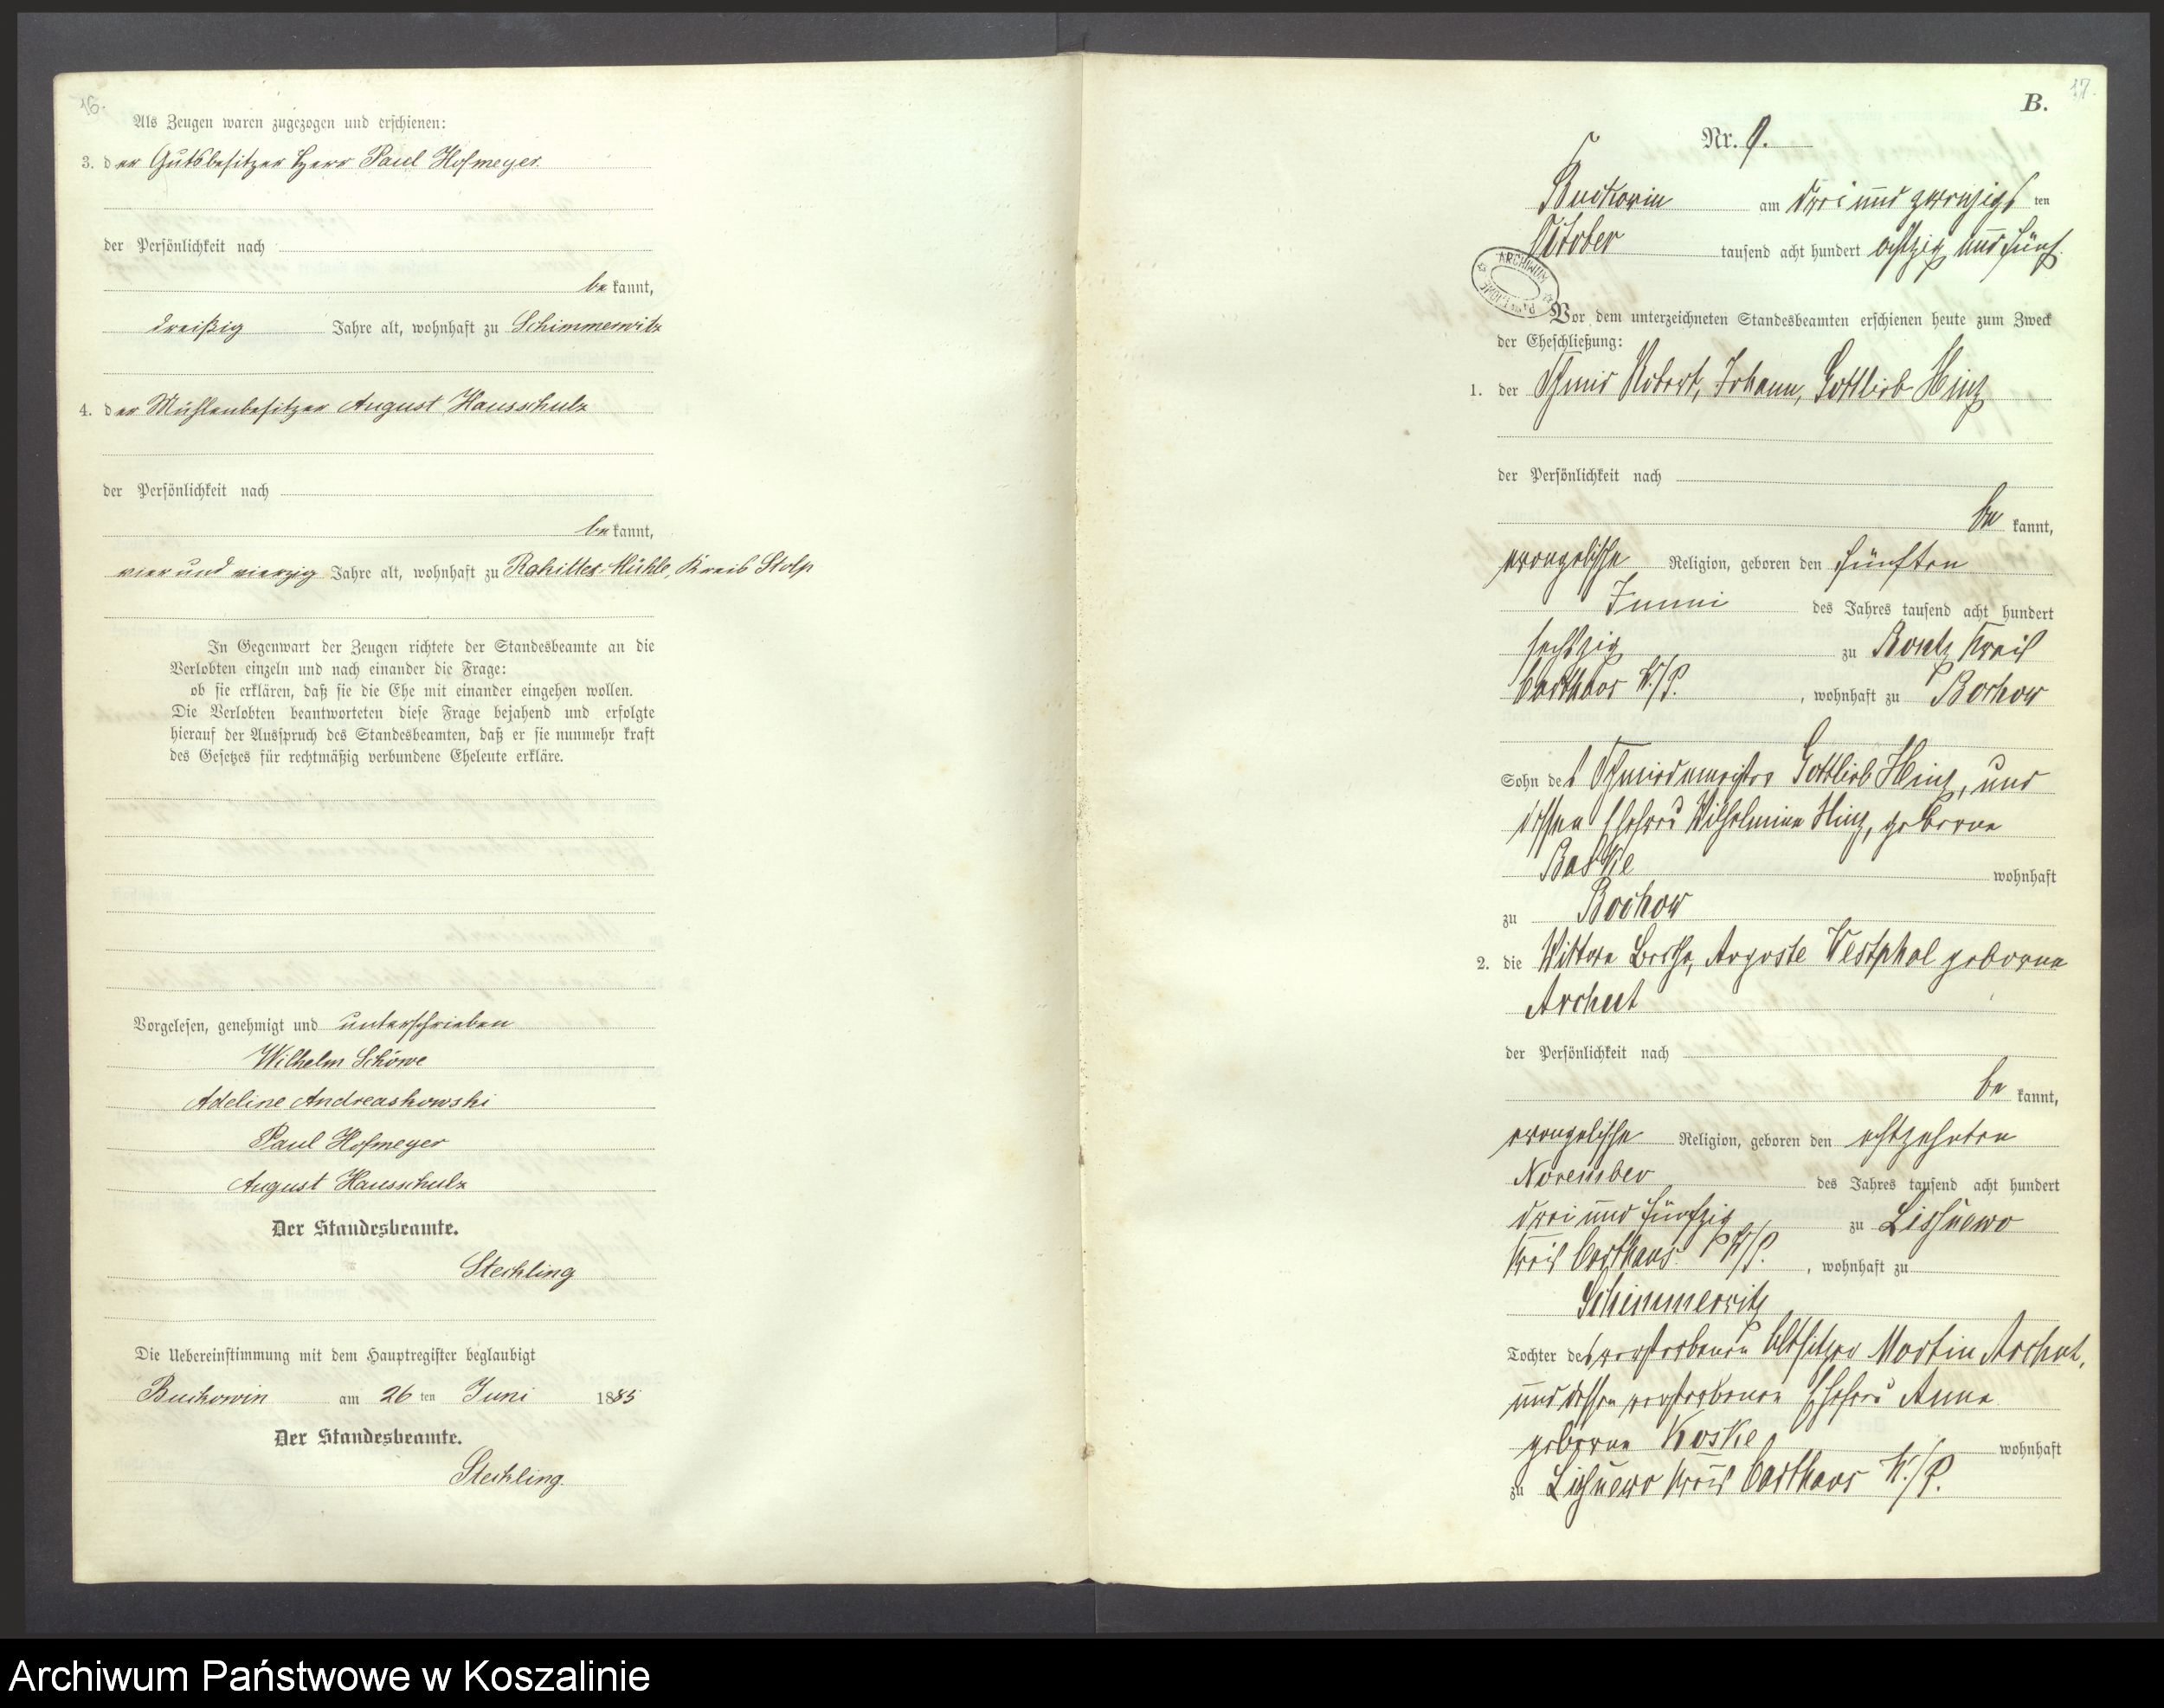 16.
Als Zeugen waren zugezogen und erschienen:
3. der Gutsbesitzer Herr Paul Hofmeyer
der Persönlichkeit nach
bekannt,
dreißig Jahre alt, wohnhaft zu Schimmerwitz
4. der Mühlenbesitzer August Hausschulz
der Persönlichkeit nach
bekannt,
vier und vierzig Jahre alt, wohnhaft zu Rokitter-Mühle, Kreis Stolp
In Gegenwart der Zeugen richtete der Standesbeamte an die
Verlobten einzeln und nach einander die Frage:
ob sie erklären, daß sie die Ehe mit einander eingehen wollen.
Die Verlobten beantworteten diese Frage bejahend und erfolgte
hierauf der Ausspruch des Standesbeamten, daß er sie nunmehr kraft
des Gesetzes für rechtmäßig verbundene Eheleute erkläre.
Vorgelesen, genehmigt und unterschrieben
Wilhelm Schöwe
Adeline Andreaskowski
Paul Hofmeyer
August Hausschulz
Der Standesbeamte.
Steckling
Die Uebereinstimmung mit dem Hauptregister beglaubigt
Buckowin am 26 ten Juni 1885
Der Standesbeamte.
Steckling.
17.
B.
Nr. 9.
Buckowin am drei und zwanzigsten
October tausend acht hundert achtzig und fünf.
ARCHIWUM PAŃSTWOWE
Vor dem unterzeichneten Standesbeamten erschienen heute zum Zweck
der Eheschließung:
1. der Schmid Robert, Johann, Gottlieb Hinz
der Persönlichkeit nach
bekannt,
evangelische Religion, geboren den fünften
Junni des Jahres tausend acht hundert
sechszig zu Kreis
Carthaus W./P., wohnhaft zu Bochow
Sohn des Schmiedemeister Gottlieb Hinz, und
dessen Ehefrau Wilhelmine Hinz, geborne
Baske wohnhaft
zu Bochow
2. die Wittwe Bertha, Auguste Westphal geborne
Archut
der Persönlichkeit nach
bekannt,
evangelische Religion, geboren den achtzehnten
November des Jahres tausend acht hundert
drei und fünfzig zu Lissnewo
Kreis Carthaus W/P., wohnhaft zu
Schimmerwitz
Tochter des verstorbenen Altsitzer Martin Archut,
und dessen verstorbenen Ehefrau Anna
geborne Koske wohnhaft
zu Lissnewo Kreis Carthaus W./P.
Archiwum Państwowe w Koszalinie